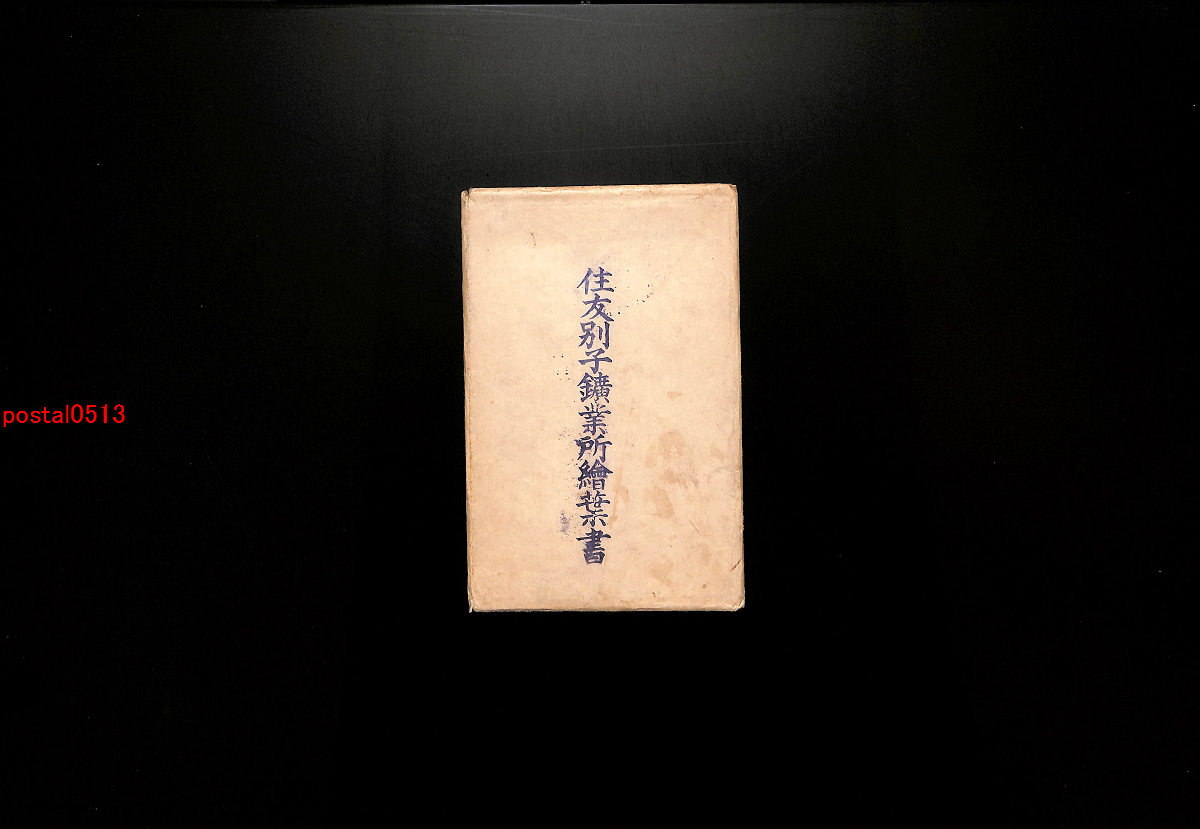 住友別子鑛業所繪葉書
postal0513